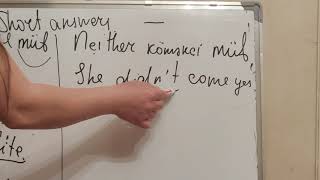 Short answers —
müb
Neither köməkçi müb
She didn't come yes
ite